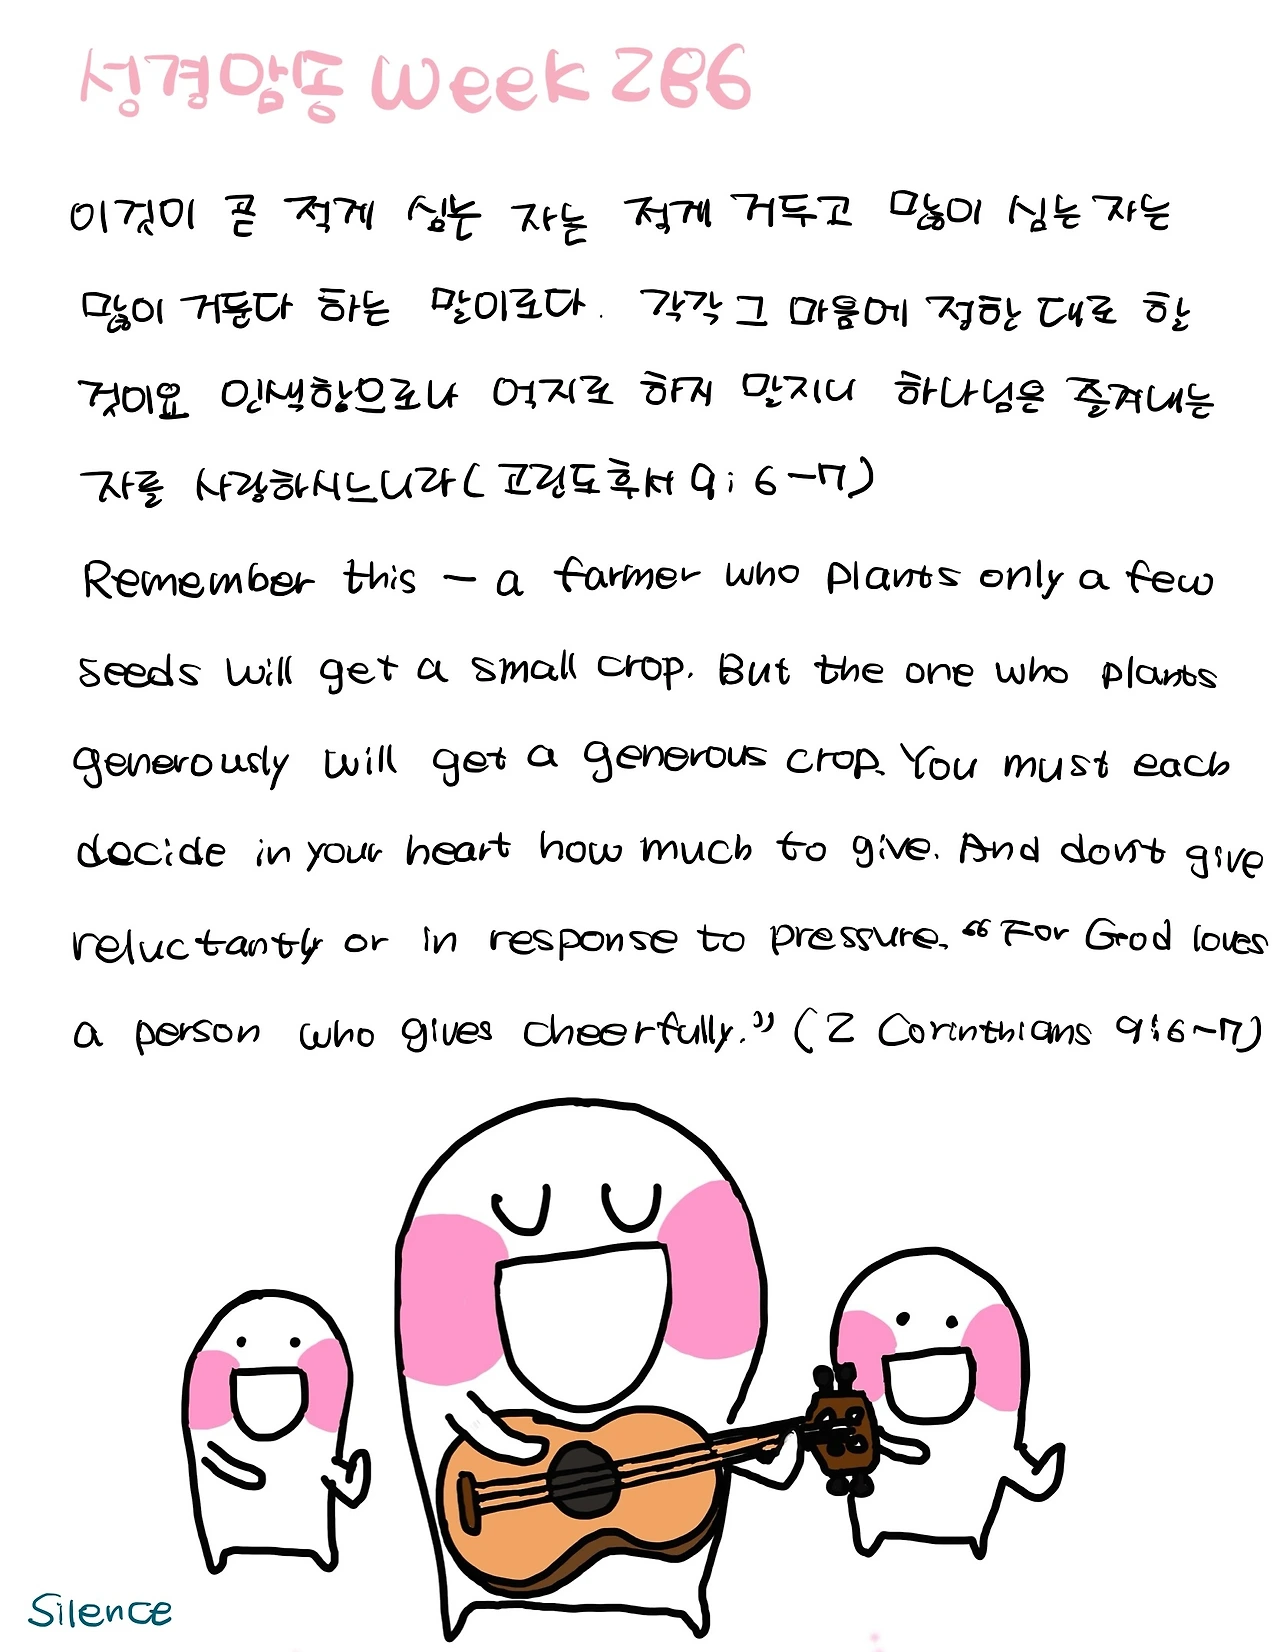 성경암송 Week 286
이것이 곧 적게 심는 자는 적게 거두고 많이 심는 자는
많이 거둔다 하는 말이로다. 각각 그 마음에 정한 대로 할
것이요 인색함으로나 억지로 하지 말지니 하나님은 즐겨내는
자를 사랑하시느니라(고린도후서 9:6-7)
Remember this - a farmer who plants only a few
seeds will get a small crop. But the one who plants
generously will get a generous crop. You must each
decide in your heart how much to give. And don't give
reluctantly or in response to pressure. "For God loves
a person who gives cheerfully." (2 Corinthians 9:6~7)
Silence